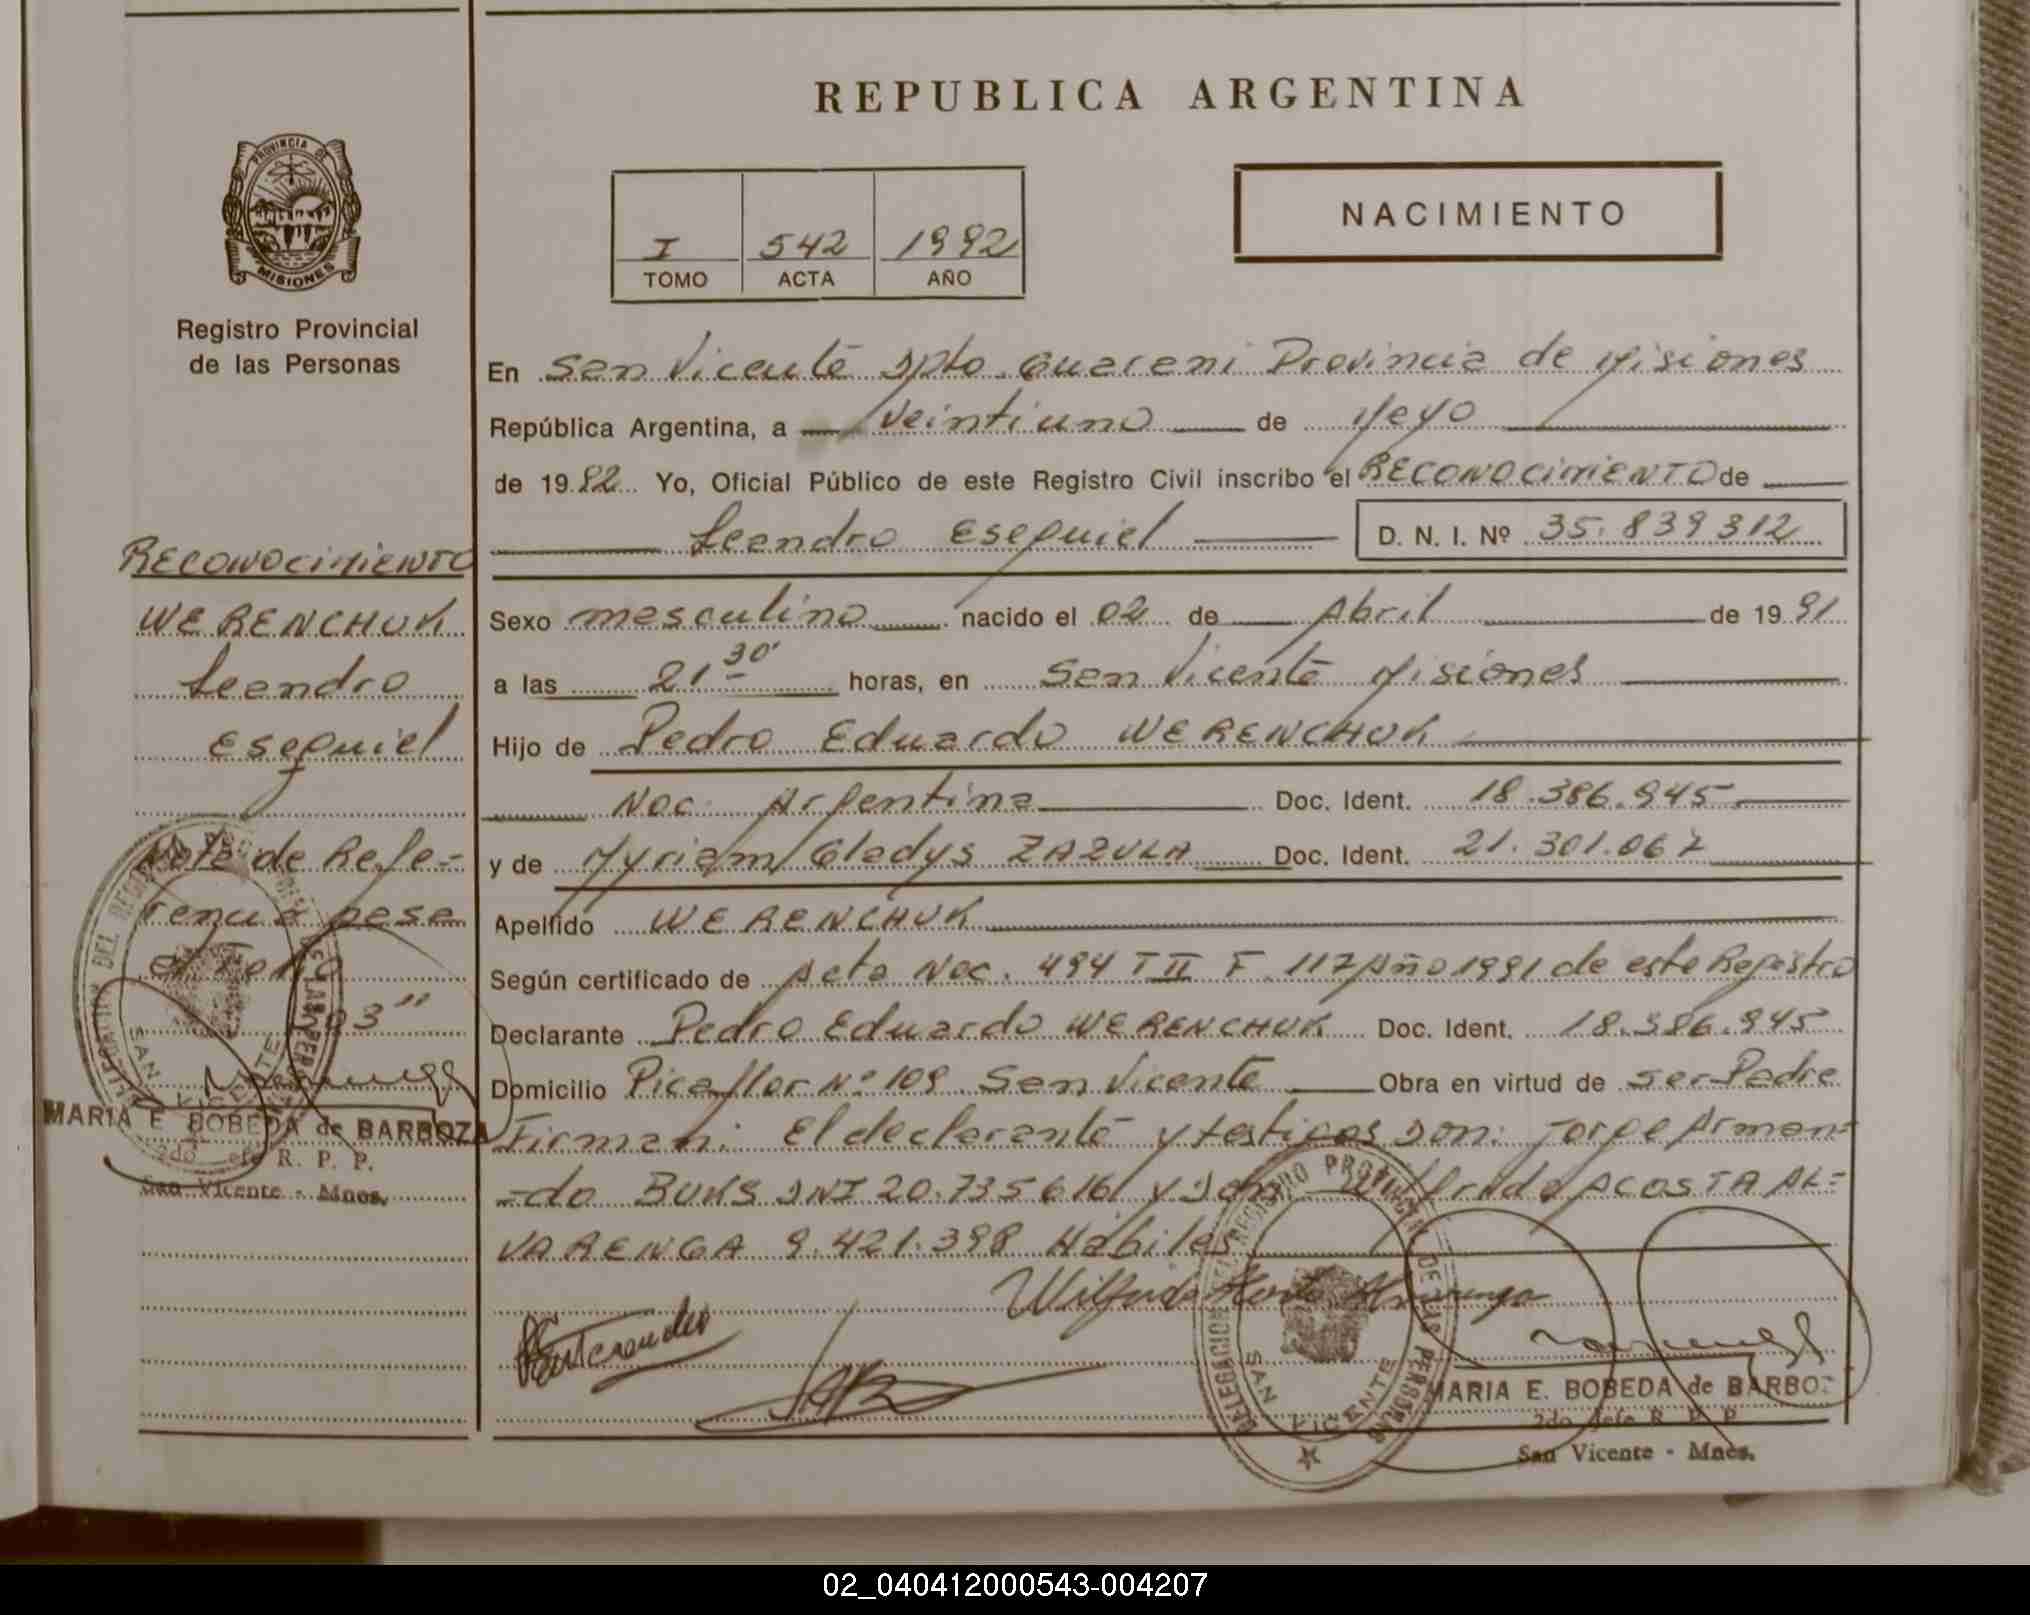 REPUBLICA ARGENTINA
PROVINCIA DE
MISIONES
Registro Provincial
de las Personas
I 542 1992
TOMO ACTA AÑO
NACIMIENTO
En San Vicente Dpto. Guarani Provincia de Misiones
República Argentina, a veintiuno de Mayo
de 1992 Yo, Oficial Público de este Registro Civil inscribo el RECONOCIMIENTO de
Leandro Esequiel D. N. I. Nº 35.839312
Sexo masculino nacido el 02 de Abril de 1991
a las 21 30' horas, en San Vicente Misiones
Hijo de Pedro Eduardo WERENCHUK
Nac. Argentina Doc. Ident. 18.386.945
y de Myriam Gladys ZAZULA Doc. Ident. 21.301.067
Apellido WERENCHUK
Según certificado de Acta Nac. 494 T II F 117 Año 1991 de este Registro
Declarante Pedro Eduardo WERENCHUK Doc. Ident. 18.386.945
Domicilio Picaflor Nº 109 San Vicente Obra en virtud de ser Padre
Firman: El declarante y testigos Don: Jorge Arman-
-do BUKS DNI 20.735616 y Don ACOSTA AL=
VARENGA 9.421.398 Hábiles
RECONOCIMIENTO
WERENCHUK
Leandro
Esequiel
Nota de Refe-=
rencia pasa
al Folio
03"
DELEGACION DEL REGISTRO PROVINCIAL DE LAS PERSONAS
SAN VICENTE
MARIA E. BOBEDA de BARBOZA
2do Jefe R. P. P.
San Vicente - Mnes.
DELEGACION DEL REGISTRO PROVINCIAL DE LAS PERSONAS
SAN VICENTE
MARIA E. BOBEDA de BARBOZ
2do Jefe R. P. P.
San Vicente - Mnes.
02_040412000543-004207